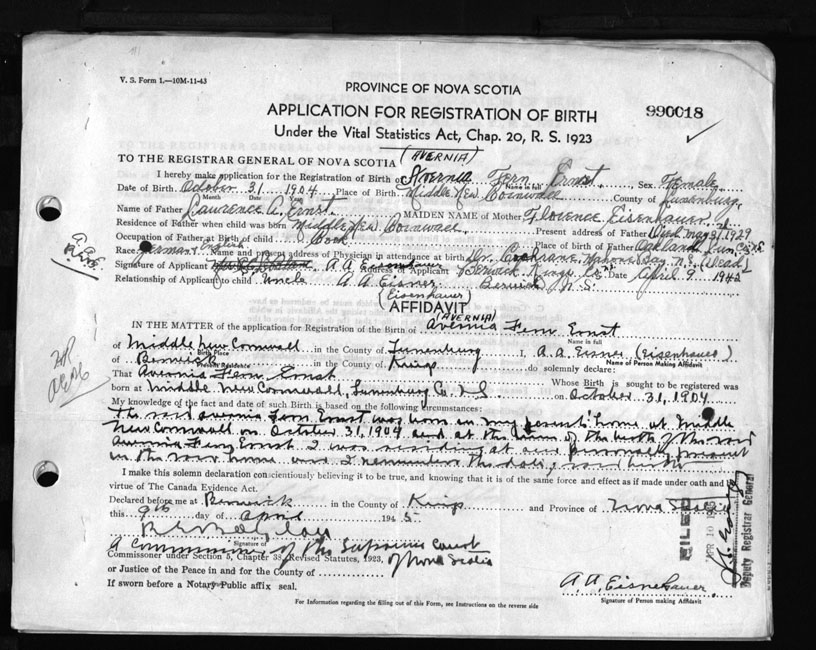 V. S. Form L—10M-11-43
PROVINCE OF NOVA SCOTIA
APPLICATION FOR REGISTRATION OF BIRTH
990018
Under the Vital Statistics Act, Chap. 20, R. S. 1923
(AVERNIA)
TO THE REGISTRAR GENERAL OF NOVA SCOTIA
I hereby make application for the Registration of Birth of Avernia Fern Ernst Sex Female
Name in full
Date of Birth October 31 1904 Place of Birth Middle New Cornwall County of Lunenburg
Month
Name of Father Lawrence A. Ernst MAIDEN NAME of Mother Florence Eisenhauer
Residence of Father when child was born Middle New Cornwall Present address of Father Died May 31 1929
Occupation of Father at Birth of child Cook Place of birth of Father Oakland Lun. Co. N.S.
Race German & English Name and present address of Physician in attendance at birth Dr. Cochrane, Mahone Bay, N.S. (Dead)
Signature of Applicant A A Eisenhauer Address of Applicant Berwick, Kings Co. N.S. Date April 9 1945
Relationship of Applicant to child Uncle A A Eisner Berwick N.S.
(Eisenhauer)
AFFIDAVIT
(AVERNIA)
IN THE MATTER of the application for Registration of the Birth of Avernia Fern Ernst
Name in full
of Middle New Cornwall in the County of Lunenburg I, A. A. Eisner (Eisenhauer)
Birth Place
Name of Person Making Affidavit
of Berwick in the County of Kings do solemnly declare:
Present Residence
That Avernia Fern Ernst Whose Birth is sought to be registered was
born at Middle New Cornwall, Lunenburg Co. N.S. on October 31, 1904
My knowledge of the fact and date of such Birth is based on the following circumstances:
The said Avernia Fern Ernst was born in my parents' home at Middle
New Cornwall on October 31, 1904 and at the time of the birth of the said
Avernia Fern Ernst I was residing at and personally present
in the said home and I remember the date of said birth
I make this solemn declaration conscientiously believing it to be true, and knowing that it is of the same force and effect as if made under oath and by
virtue of The Canada Evidence Act.
Declared before me at Berwick in the County of Kings and Province of Nova Scotia
this 9th day of April 1945
Signature of
A Commissioner of the Supreme Court
of Nova Scotia
Commissioner under Section 5, Chapter 38, Revised Statutes, 1923,
or Justice of the Peace in and for the County of
If sworn before a Notary Public affix seal.
A. A. Eisenhauer
Signature of Person making Affidavit
For Information regarding the filling out of this Form, see Instructions on the reverse side
FILED
APR 10
Deputy Registrar General